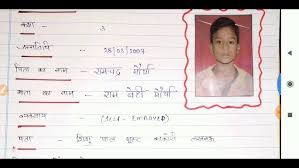 कक्षा - 3
जन्मतिथि - 28/03/2007
पिता का नाम - रामचंद्र मौर्या
माता का नाम - राम बेटी मौर्या
व्यवसाय - (SELF-EMPLOYED)
पता - शिशु पाल
लखनऊ